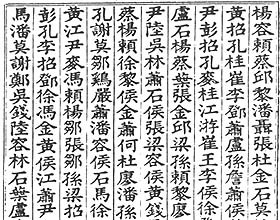 楊容賴蔡徐黎潘聶張杜金石莫
黃招孔賴桂崔李鄧蕭盧孫詹蕭
尹彭招孔麥桂江游崔王李侯徐
盧石楊蔡葉張金邱梁孫賴黎廖
尹陸吳林蕭石侯張梁容侯黃錢
蔡楊賴徐黎侯金蕭何杜廖潘孫
孔謝莫鄒嚴蕭潘容侯石馬徐
黃江尹麥馮賴楊鄒張鄒孫梁招
彭孔李招鄧徐馮金黃侯江蕭尹
馬潘莫謝鄭吳錢陸容林石葉盧